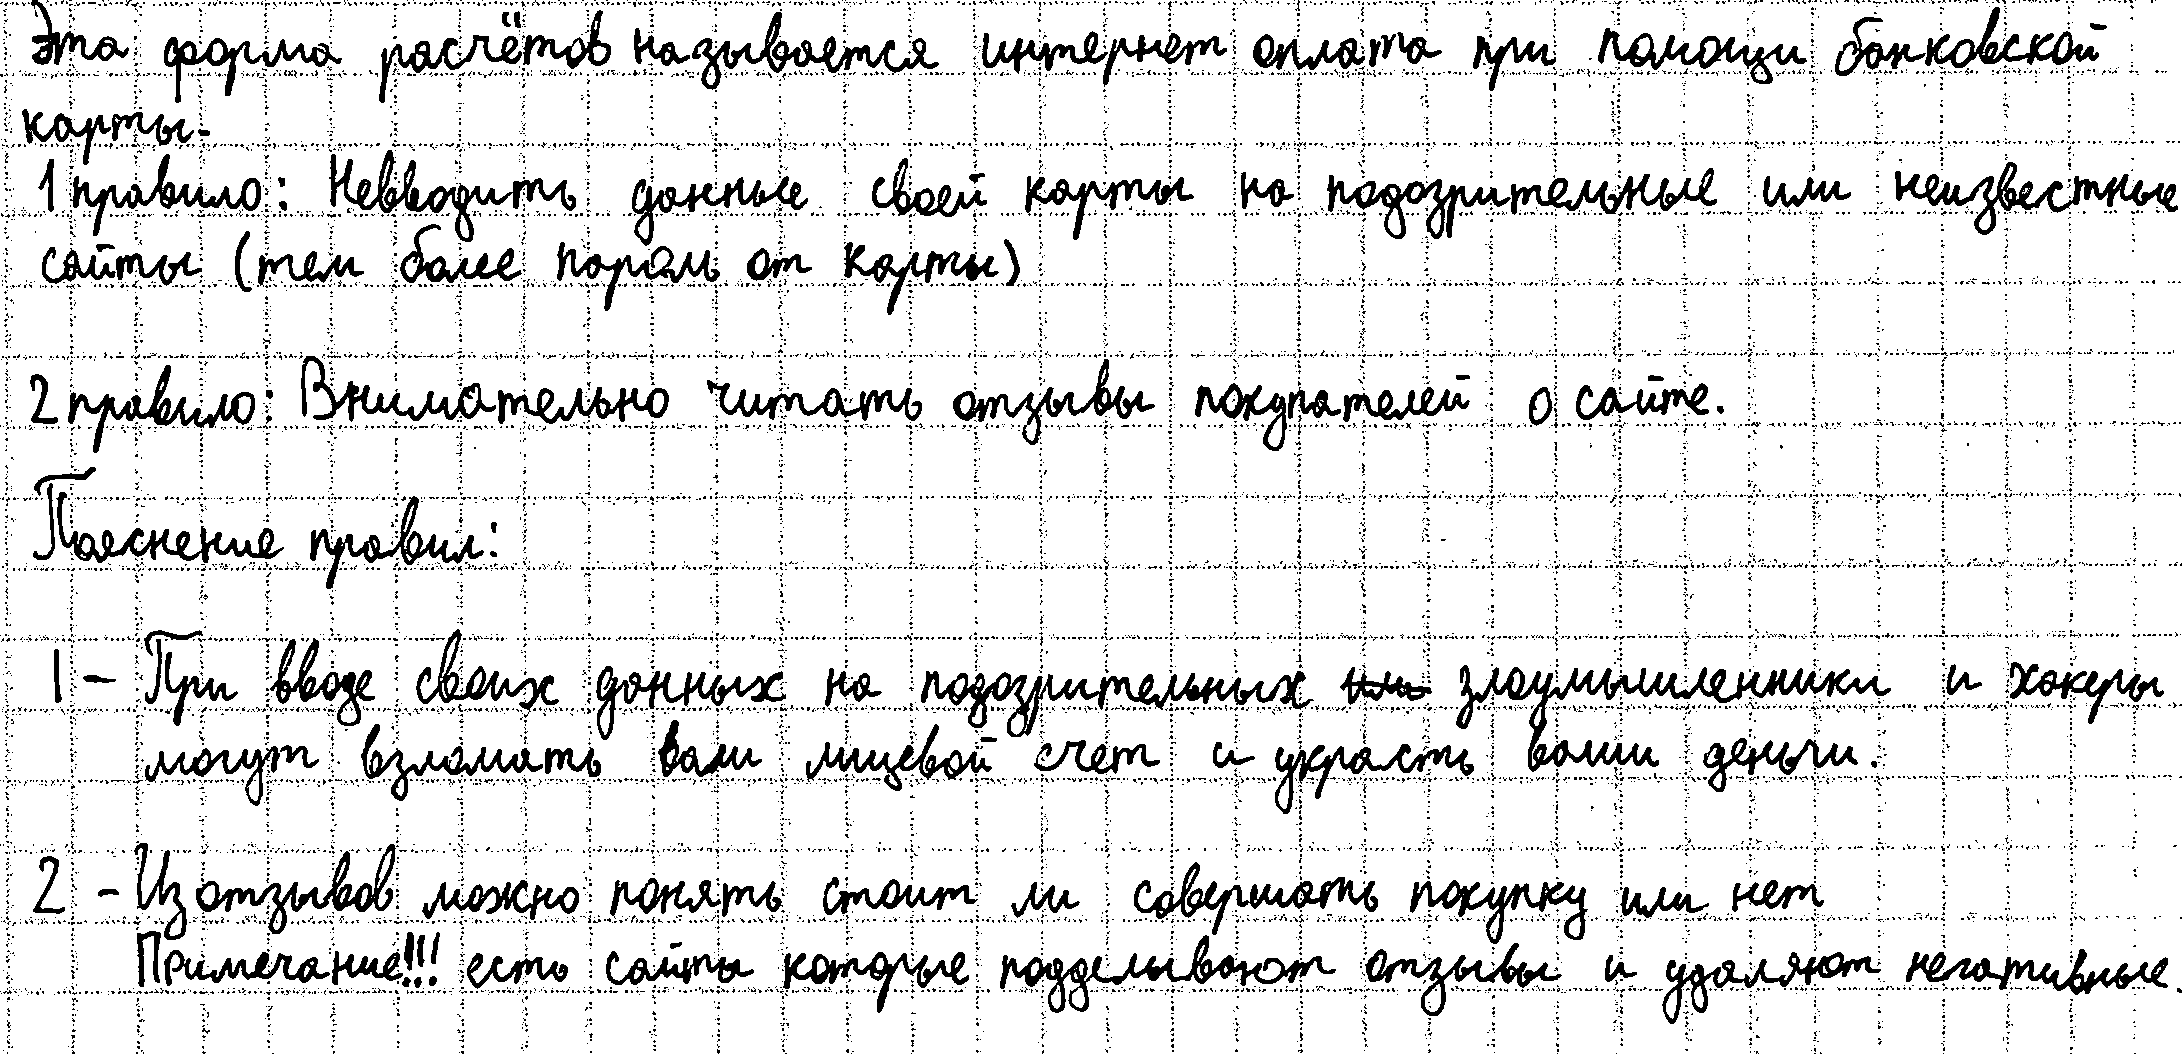 Эта форма расчётов называется интернет оплата при помощи банковской
карты.
1 правило: Невводить данные своей карты на подозрительные или неизвестные
сайты (тем более пароль от карты)
2 правило: Внимательно читать отзывы покупателей о сайте.
Пояснение правил:
1 - При вводе своих данных на подозрительных или злоумышленники и хакеры
могут взломать ваш лицевой счет и украсть ваши деньги.
2 - Из отзывов можно понять стоит ли совершать покупку или нет
Примечание!!! есть сайты которые подделывают отзывы и удаляют негативные.